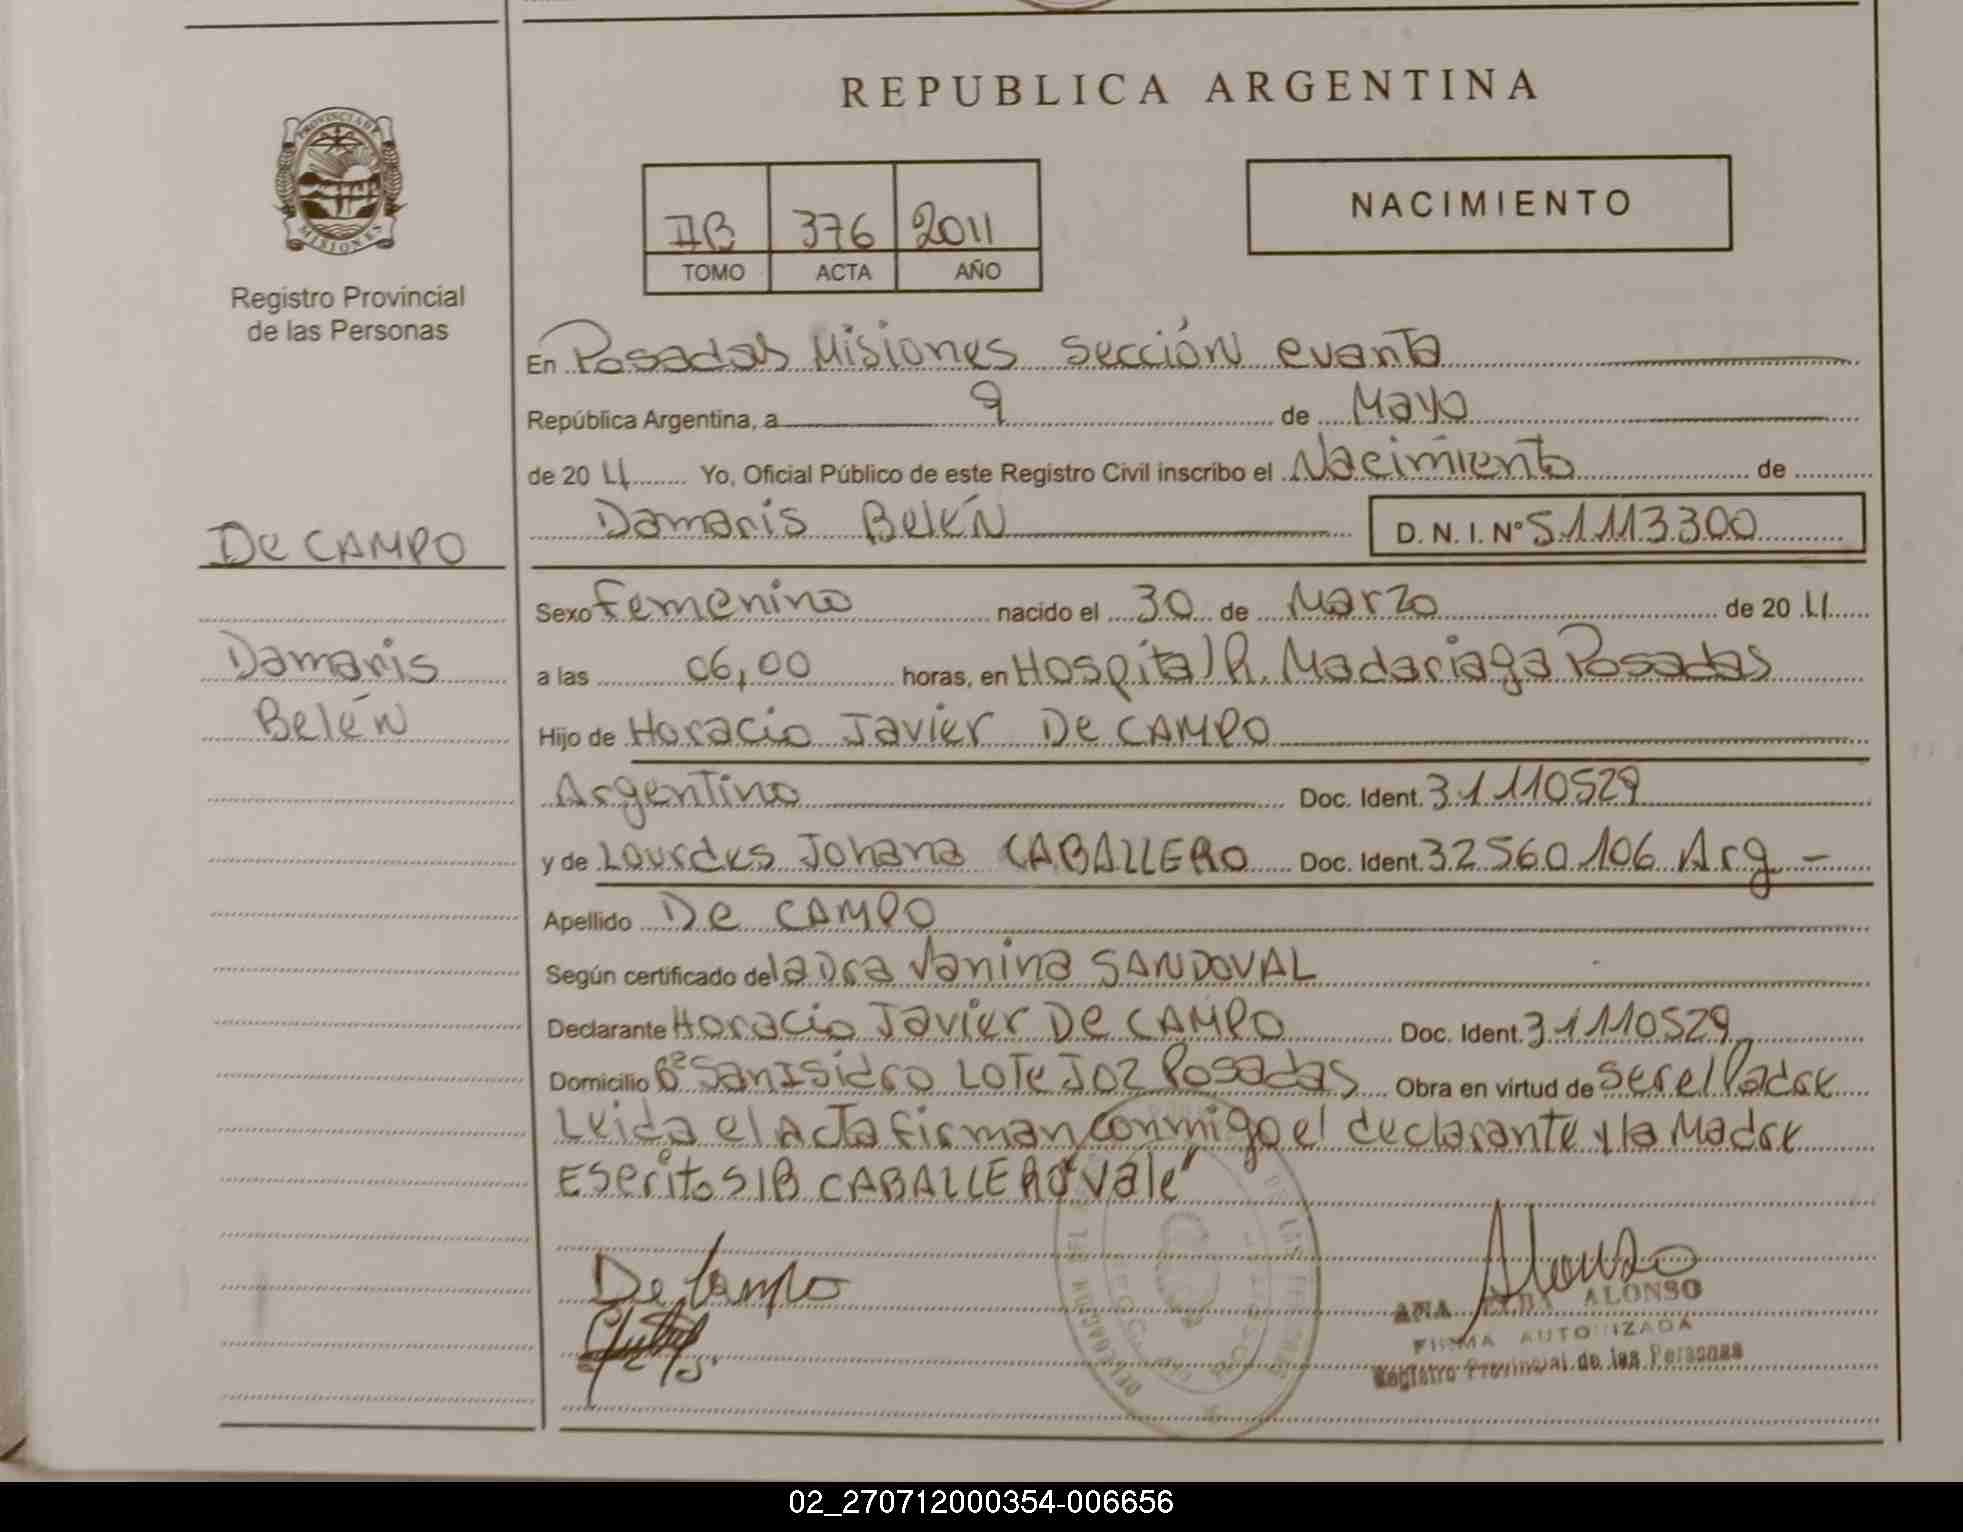 REPUBLICA ARGENTINA
PROVINCIA DE
MISIONES
Registro Provincial
de las Personas
IIB 376 2011
TOMO ACTA AÑO
NACIMIENTO
En Posadas Misiones sección evanta
República Argentina, a 9 de Mayo
de 20 11 Yo, Oficial Público de este Registro Civil inscribo el Nacimiento de
Damaris Belén D. N. I. Nº 51113300
DE CAMPO
Sexo Femenino nacido el 30 de Marzo de 20 11
Damaris
a las 06,00 horas, en Hospital R. Madariaga Posadas
Belén
Hijo de Horacio Javier De CAMPO
Argentino Doc. Ident. 31110529
y de Lourdes Johana CABALLERO Doc. Ident. 32560106 Arg -
Apellido De CAMPO
Según certificado de la Dra Vanina SANDOVAL
Declarante Horacio Javier De CAMPO Doc. Ident. 31110529
Domicilio Bº San Isidro LOTe 102 Posadas Obra en virtud de ser el Padre
Leida el Acta firman conmigo el declarante y la Madre
Escrito S/B CABALLERO "Vale"
De Campo
Alonso
ANA ALONSO
FIRMA AUTORIZADA
Registro Provincial de las Personas
02_270712000354-006656